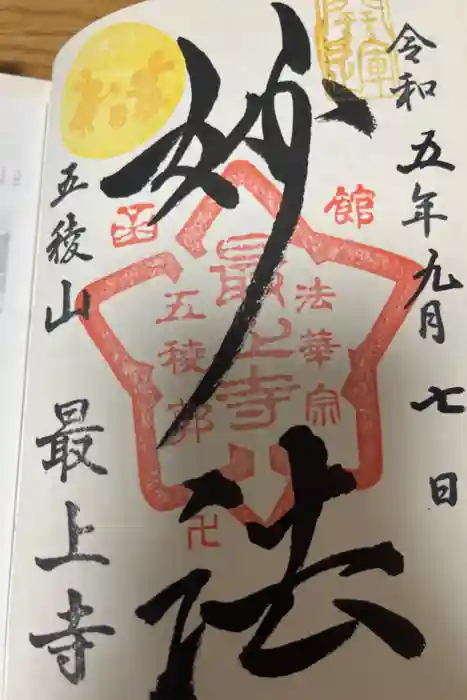 令和五年九月七日
妙法
五稜山 最上寺
函館
法華宗
最上寺
五稜郭
卍